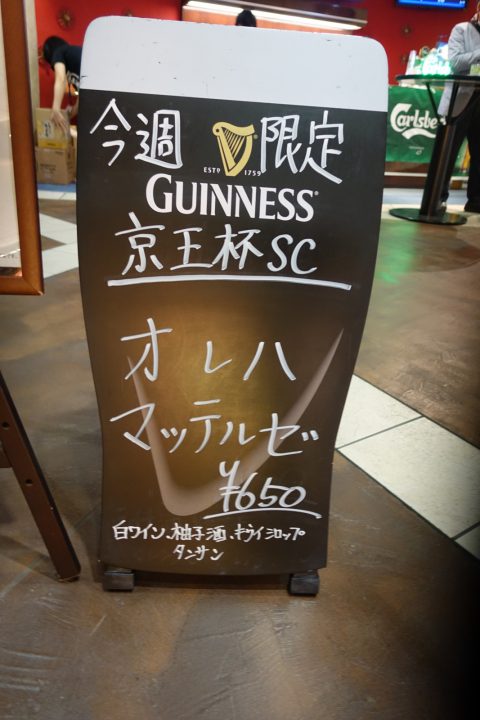 今週 限定
ESTD 1759
GUINNESS
京王杯SC
オレハ
マッテルゼ
¥650
白ワイン、柚子酒、キウイシロップ
タンサン
Carlsbe